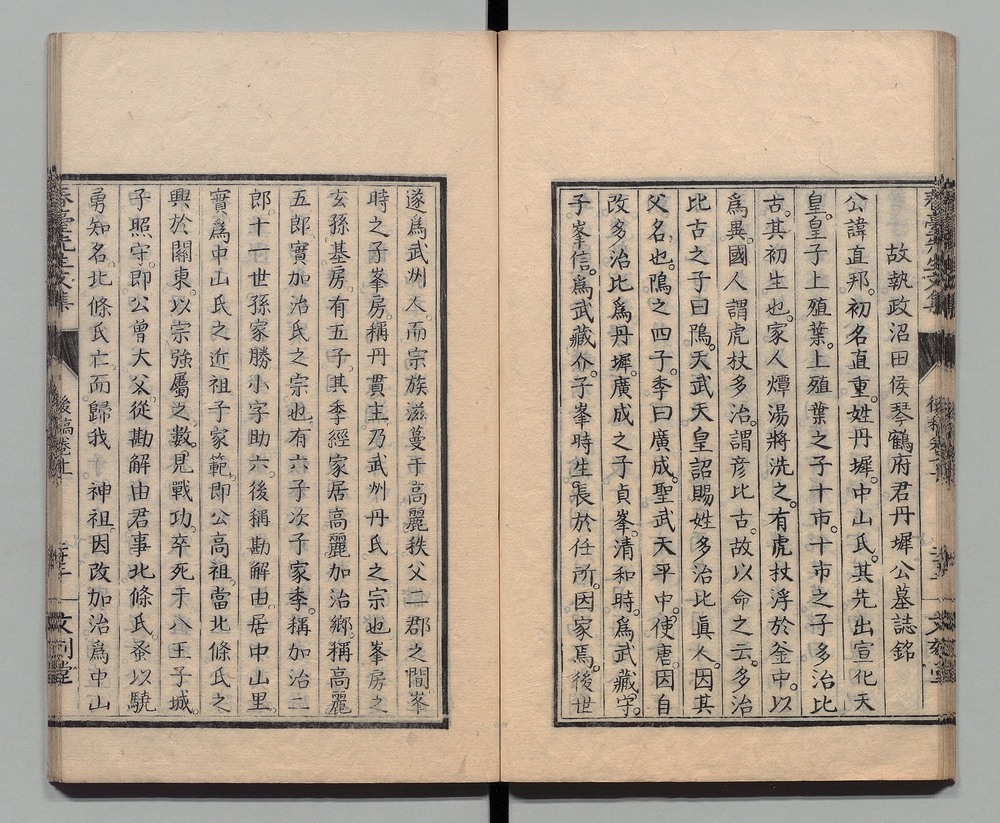 故執政沼田侯琴鶴府君丹墀公墓誌銘
公諱直邦。初名直重。姓丹墀。中山氏。其先出宣化天
皇。皇子上殖葉。上殖葉之子十市。十市之子多治比
古。其初生也。家人燂湯將洗之。有虎杖浮於釜中。以
爲異。國人謂虎杖多治。謂彦比古。故以命之云。多治
比古之子曰隝。天武天皇詔賜姓多治比眞人。因其
父名也。隝之四子。季曰廣成。聖武天平中。使唐。因自
改多治比爲丹墀。廣成之子貞峯。清和時。爲武藏守。
子峯信。爲武藏介。子峯時生。長於任所。因家焉。後世
遂爲武州人。而宗族滋蔓于高麗秩父二郡之間。峯
時之子峯房。稱丹貫主。乃武州丹氏之宗也。峯房之
玄孫基房。有五子。其季經家居高麗加治鄉。稱高麗
五郎。實加治氏之宗也。有六子。次子家季。稱加治二
郎。十一世孫家勝。小字助六。後稱勘解由。居中山里。
實爲中山氏之近祖。子家範。即公高祖。當北條氏之
興於關東。以宗強屬之。數見戰功。卒死于八王子城。
子照守。即公曾大父。從勘解由君事北條氏。蚤以驍
勇知名。北條氏亡。而歸我 神祖。因改加治爲中山
春臺先生文集
後稿卷十一